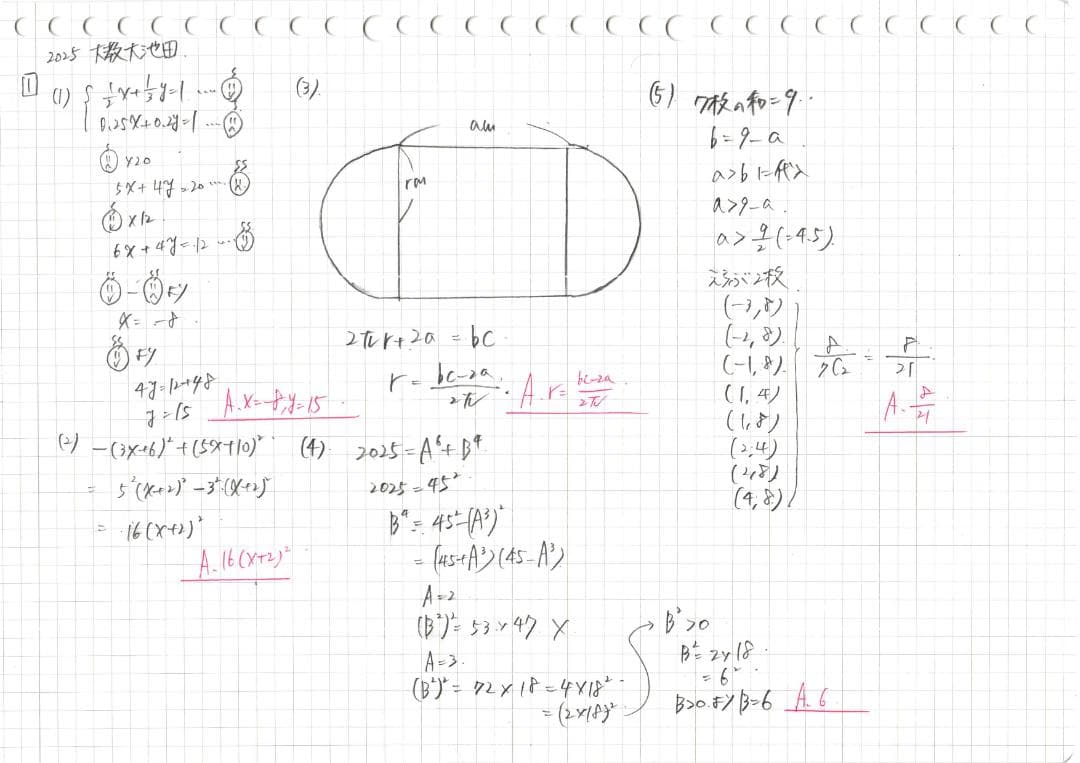 2025 大教大池田.
1
(1) { 1/2x+1/3y=1 …
0.25x+0.2y=1 …
×20
5x+4y=20 …
×12
6x+4y=12 …
- より
x=-8
より
4y=12+48
y=15
A. x=-8, y=15
(2) -(3x+6)²+(5x+10)²
= 5²(x+2)²-3²(x+2)²
= 16(x+2)²
A. 16(x+2)²
(3).
am
rm
2πr+2a = bc
r = bc-2a/2π.
A. r= bc-2a/2π
(4). 2025=A⁶+B⁴
2025=45²
B⁴=45²-(A³)²
=(45+A³)(45-A³)
A=2
(B²)²=53×47 ×
A=3.
(B²)²=72×18=4×18²
=(2×18)²
B²>0
B²=2×18
=6²
B>0より B=6
A. 6
(5). 7枚の和=9..
b=9-a
a>bに代入
a>9-a.
a>9/2(=4.5).
えらぶ2枚
(-3,8)
(-2,8)
(-1,8)
(1,4)
(1,8)
(2,4)
(2,8)
(4,8)
8/7C2 = 8/21
A. 8/21